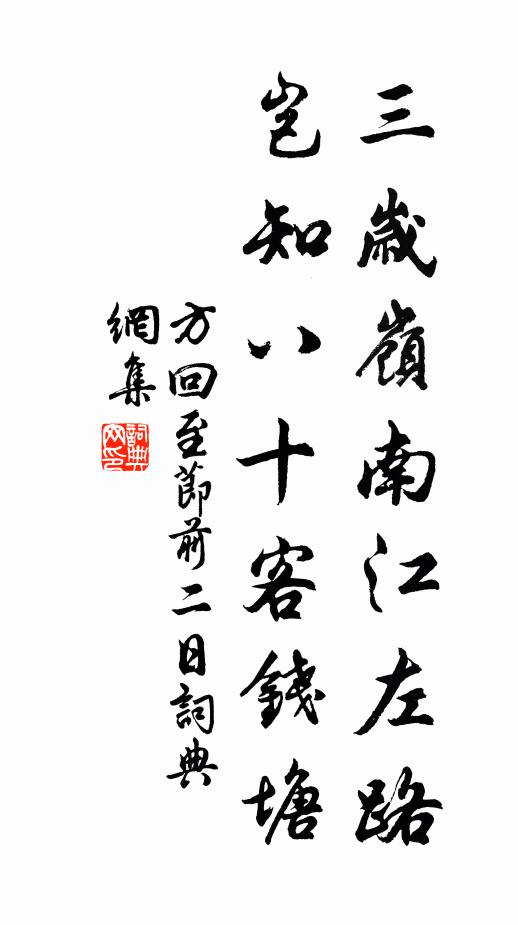 三歲嶺南江左路
豈知八十客錢塘
方回至節前二日詞典
網集
詞典網印